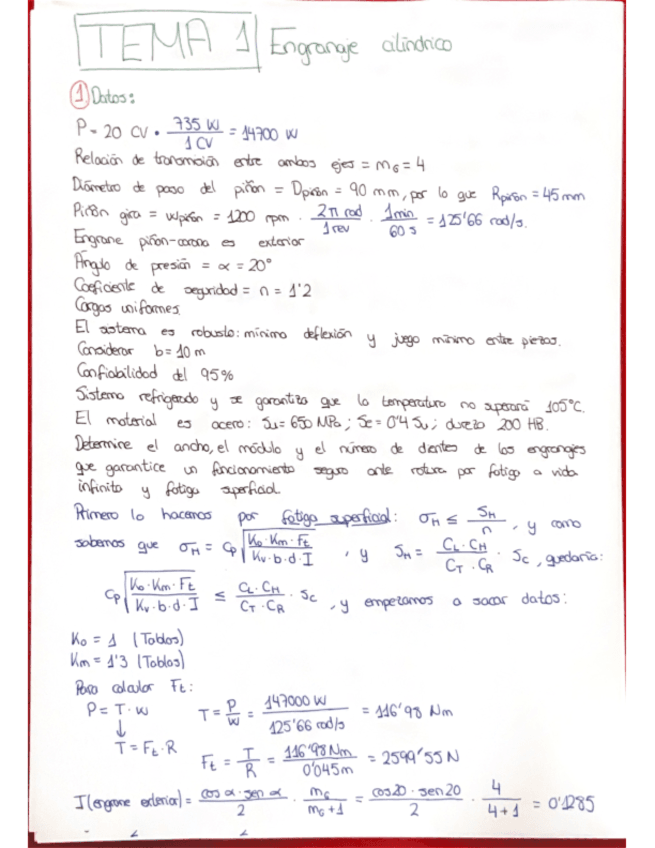 TEMA 1 Engranaje cilíndrico
① Datos:
P = 20 CV · 735 W / 1 CV = 14700 W
Relación de transmisión entre ambos ejes = m_G = 4
Diámetro de paso del piñón = Dpiñón = 90 mm, por lo que Rpiñón = 45 mm
Piñón gira = wpiñón = 1200 rpm · 2π rad / 1 rev · 1 min / 60 s = 125'66 rad/s.
Engrane piñon-corona es exterior
Ángulo de presión = α = 20°
Coeficiente de seguridad = n = 1'2
Cargas uniformes.
El sistema es robusto: mínima deflexión y juego mínimo entre piezas.
Considerar b = 10 m
Confiabilidad del 95%
Sistema refrigerado y se garantiza que la temperatura no superará 105°C.
El material es acero: Su = 650 MPa; Sc = 0'4 Su; dureza 200 HB.
Determine el ancho, el módulo y el número de dientes de los engranajes
que garantice un funcionamiento seguro ante rotura por fatiga a vida
infinita y fatiga superficial.
Primero lo hacemos por fatiga superficial: σ_H ≤ S_H / n, y como
sabemos que σ_H = Cp √(Ko · Km · Ft / Kv · b · d · I), y S_H = C_L · C_H / C_T · C_R · Sc, quedaría:
Cp √(Ko · Km · Ft / Kv · b · d · I) ≤ C_L · C_H / C_T · C_R · Sc, y empezamos a sacar datos:
Ko = 1 (Tablas)
Km = 1'3 (Tablas)
Para calcular Ft:
P = T · w T = P / w = 147000 W / 125'66 rad/s = 116'98 Nm
↓
T = Ft · R Ft = T / R = 116'98 Nm / 0'045 m = 2599'55 N
I (engrane exterior) = cos α · sen α / 2 · m_G / m_G + 1 = cos 20 · sen 20 / 2 · 4 / 4 + 1 = 0'1285